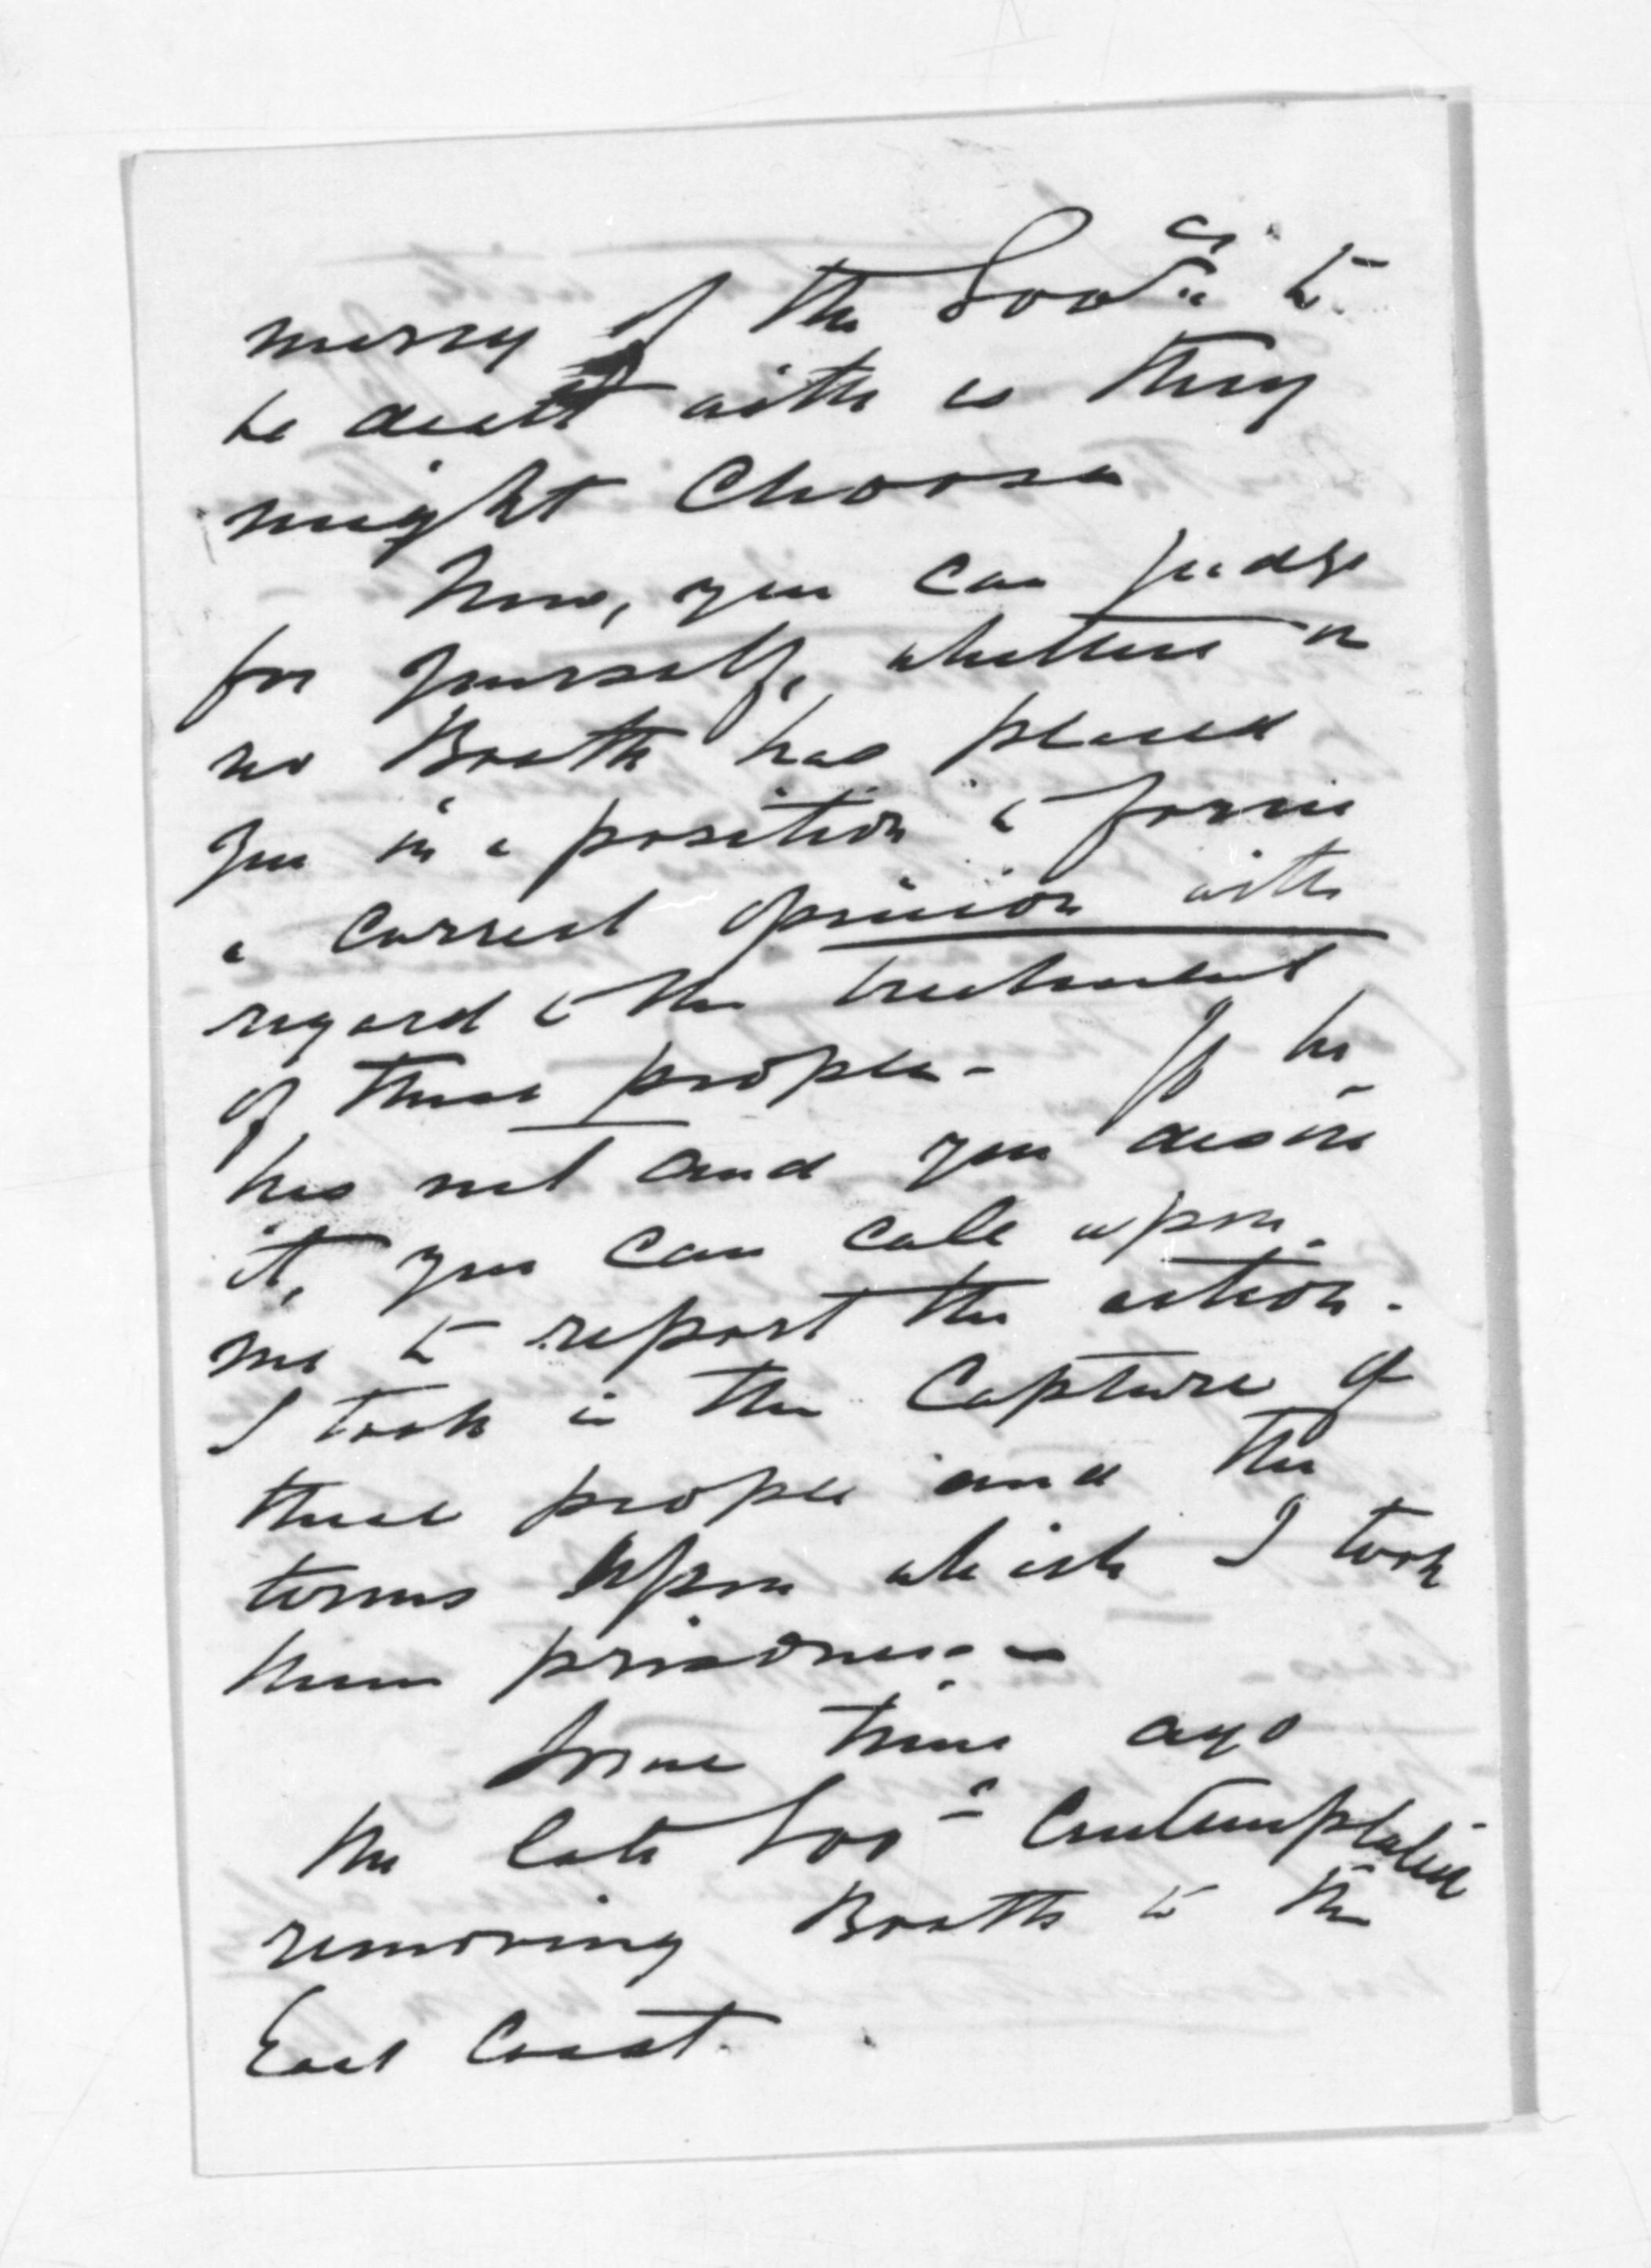 mercy of the Govt to
be dealt with as they
might choose
Now, you can judge
for yourself, whether or
no Booth has placed
you in a position to form
a correct opinion with
regard to the treatment
of these people - If he
has not and you desire
it, you can call upon
me to report the action
I took in the Capture of
these people and the
terms upon which I took
them prisoners -
Some time ago
the late Govt Contemplated
removing Booth to the
East Coast.